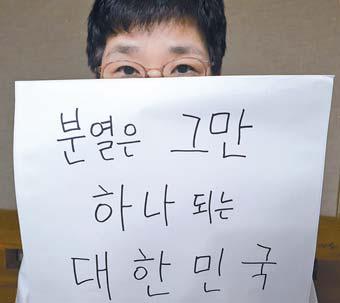 분열은 그만
하나 되는
대한민국